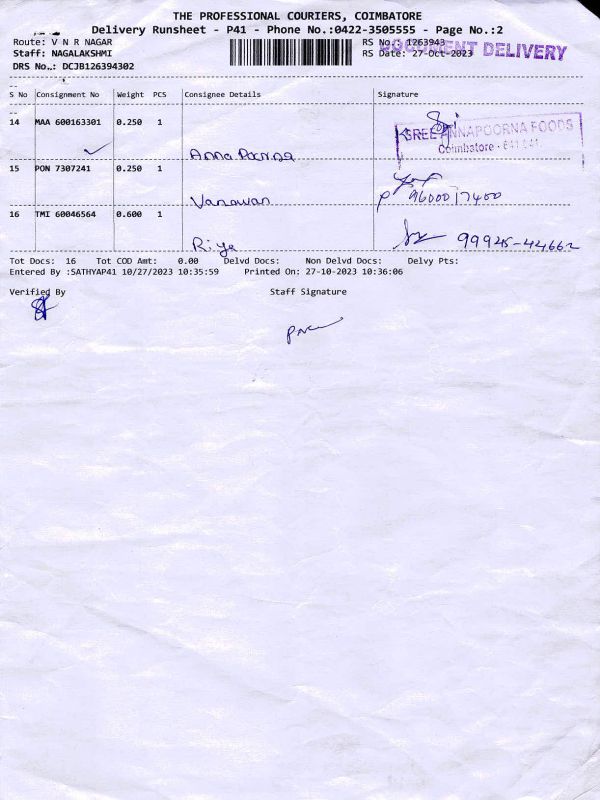 THE PROFESSIONAL COURIERS, COIMBATORE
Delivery Runsheet - P41 - Phone No.:0422-3505555 - Page No.:2
Route: V N R NAGAR RS No.: 1263943
DOCUMENT DELIVERY
Staff: NAGALAKSHMI RS Date: 27-Oct-2023
DRS No.: DCJB126394302
S No Consignment No Weight PCS Consignee Details Signature
14 MAA 600163301 0.250 1
SREE ANNAPOORNA FOODS
Coimbatore - 641 041
Anna Poorna
15 PON 7307241 0.250 1
Vanavan P 9600017400
16 TMI 60046564 0.600 1
Riya 99945-44662
Tot Docs: 16 Tot COD Amt: 0.00 Delvd Docs: Non Delvd Docs: Delvy Pts:
Entered By :SATHYAP41 10/27/2023 10:35:59 Printed On: 27-10-2023 10:36:06
Verified By Staff Signature